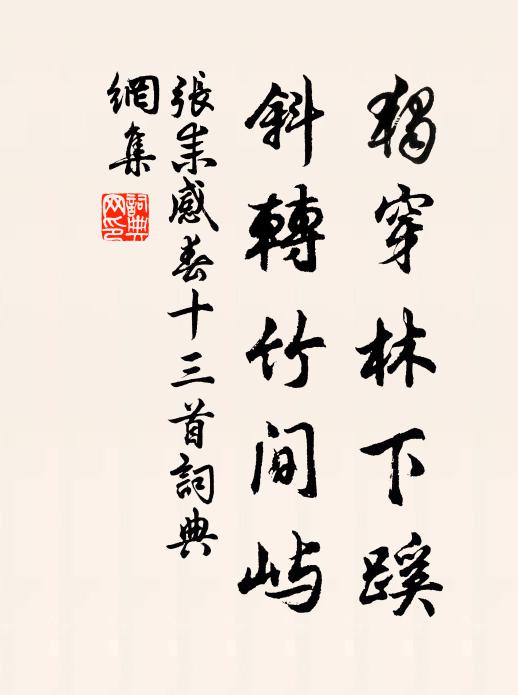 獨穿林下蹊
斜轉竹間嶼
張耒感春十三首詞典
網集
詞典網印